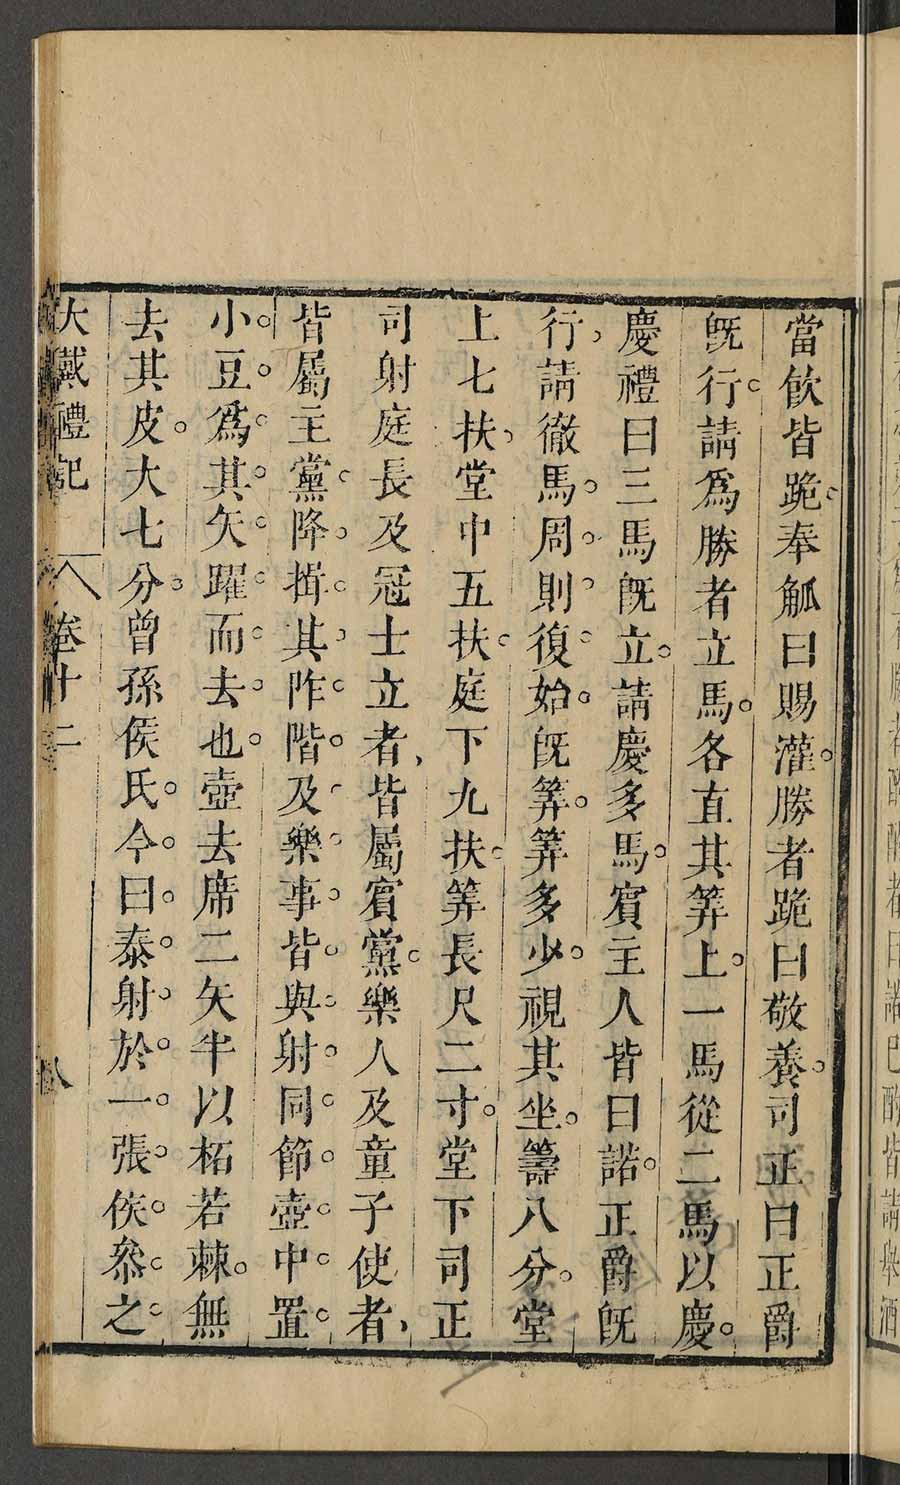 當飲皆跪奉觚曰賜灌勝者跪曰敬養司正曰正爵
旣行請爲勝者立馬各直其筭上一馬從二馬以慶
慶禮曰三馬旣立請慶多馬賓主人皆曰諾正爵旣
行請徹馬周則復始旣筭筭多少視其坐籌八分堂
上七扶堂中五扶庭下九扶筭長尺二寸堂下司正
司射庭長及冠士立者皆屬賓黨樂人及童子使者
皆屬主黨降揖其阼階及樂事皆與射同節壺中置
小豆爲其矢躍而去也壺去席二矢半以柘若棘無
去其皮大七分曾孫侯氏今曰泰射於一張侯叅之
大戴禮記 卷十二 八